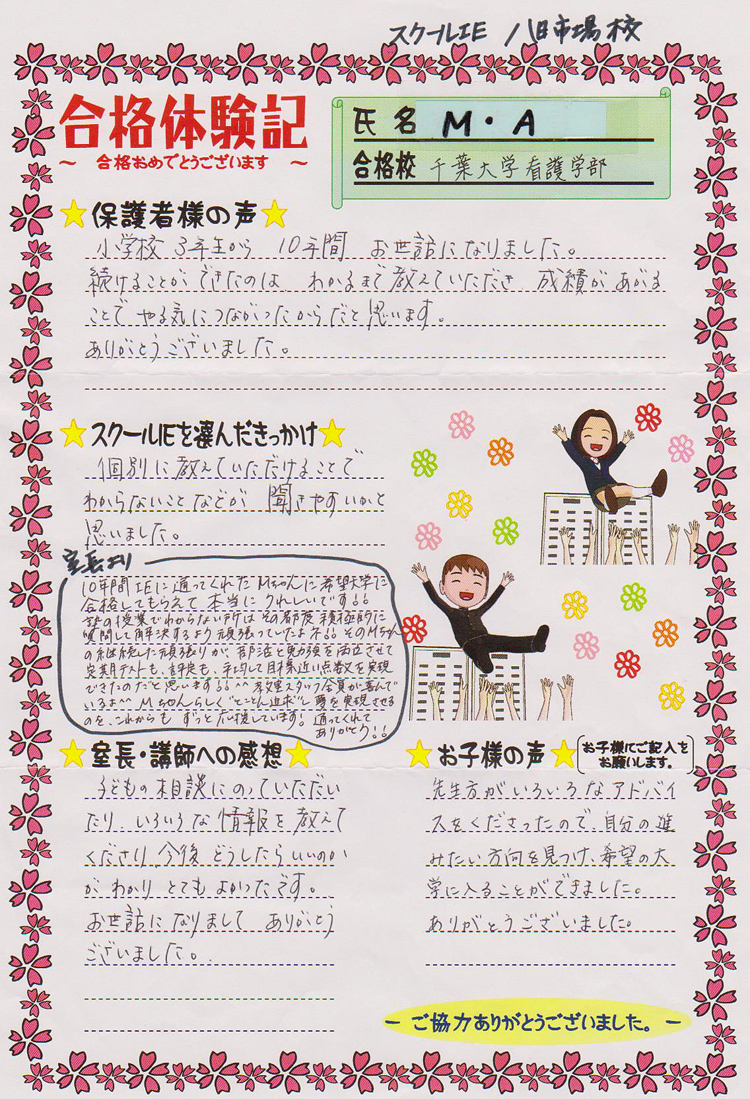 スクールIE 八日市場校
合格体験記
～ 合格おめでとうございます ～
氏名 M・A
合格校 千葉大学看護学部
保護者様の声
小学校3年生から 10年間 お世話になりました。
続けることができたのは わかるまで教えていただき 成績があがる
ことで やる気につながったからだと思います。
ありがとうございました。
スクールIEを選んだきっかけ
個別に教えていただけることで
わからないことなどが 聞きやすいかと
思いました。
室長より
10年間IEに通ってくれたMちゃんに希望大学に
合格してもらえて 本当に うれしいです!!
塾の授業でわからない所は その都度 積極的に
質問して解決するよう頑張っていたよネ!! そのMちゃん
の継続した頑張りが、部活と勉強を両立させて
定期テストも、評定も、平均して目標近い点数を実現
できたのだと思います!! ^^ 教室スタッフ全員が喜んで
いるよ^^ Mちゃんらしく"とことん追求"し夢を実現させる
のを、これからも ずっと応援しています! 通ってくれて
ありがとう!!
室長・講師への感想
子どもの相談にのっていただい
たり、いろいろな情報を教えて
くださり 今後 どうしたらいいのか
がわかり とてもよかったです。
お世話になりまして ありがとう
ございました。
お子様の声
お子様にご記入を
お願いします。
先生方がいろいろなアドバイ
スをくださったので、自分の進
みたい方向を見つけ、希望の大
学に入ることができました。
ありがとうございました。
－ ご協力ありがとうございました。－